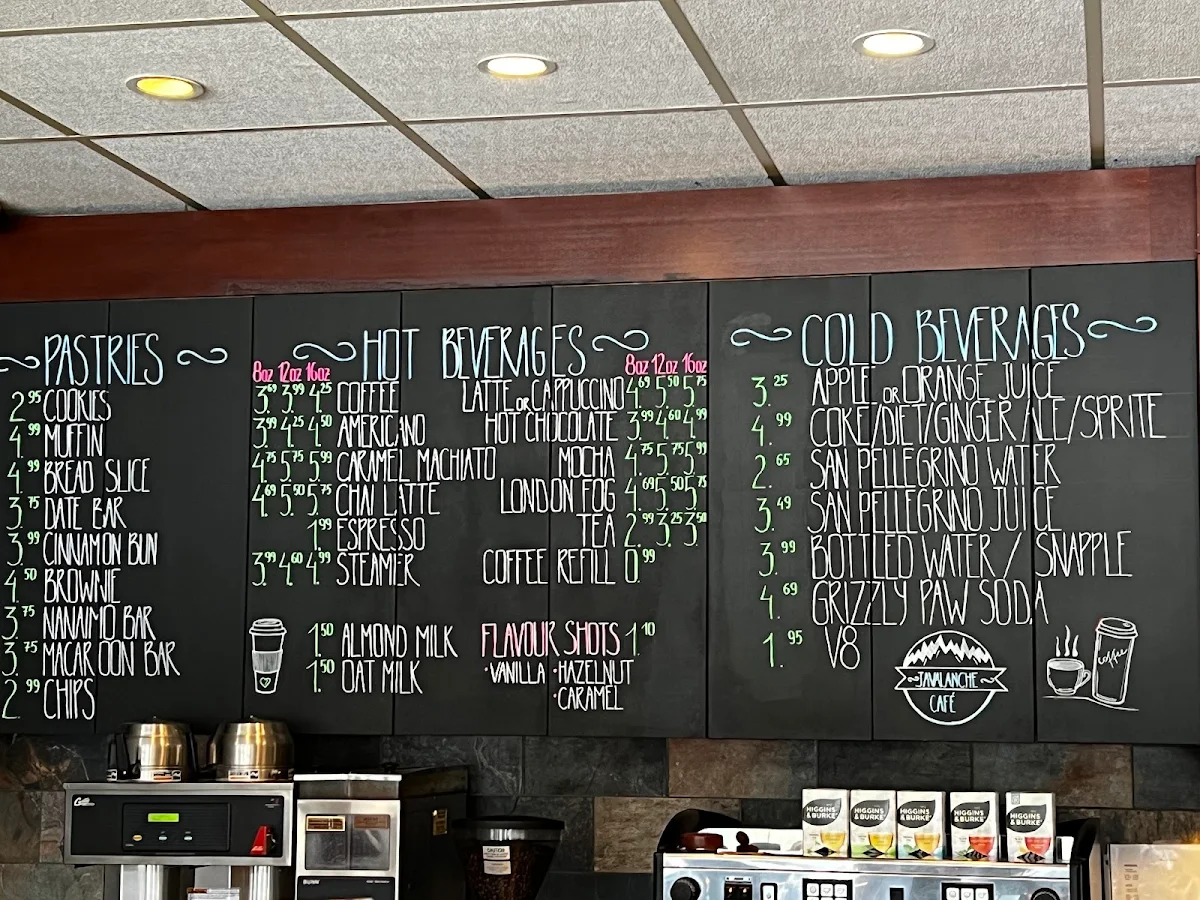 PASTRIES
2.95 COOKIES
4.99 MUFFIN
4.99 BREAD SLICE
3.75 DATE BAR
3.99 CINNAMON BUN
4.50 BROWNIE
3.75 NANAIMO BAR
3.75 MACAROON BAR
2.99 CHIPS
HOT BEVERAGES
8oz 12oz 16oz
3.69 3.99 4.25 COFFEE
3.99 4.25 4.50 AMERICANO
4.75 5.75 5.99 CARAMEL MACHIATO
4.69 5.50 5.75 CHAI LATTE
1.99 ESPRESSO
3.99 4.60 4.99 STEAMER
1.50 ALMOND MILK
1.50 OAT MILK
8oz 12oz 16oz
LATTE OR CAPPUCCINO 4.69 5.50 5.75
HOT CHOCOLATE 3.99 4.60 4.99
MOCHA 4.75 5.75 5.99
LONDON FOG 4.69 5.50 5.75
TEA 2.99 3.25 3.50
COFFEE REFILL 0.99
FLAVOUR SHOTS 1.10
·VANILLA ·HAZELNUT
·CARAMEL
COLD BEVERAGES
3.25 APPLE OR ORANGE JUICE
4.99 COKE/DIET/GINGER ALE/SPRITE
2.65 SAN PELLEGRINO WATER
3.49 SAN PELLEGRINO JUICE
3.99 BOTTLED WATER / SNAPPLE
4.69 GRIZZLY PAW SODA
1.95 V8
JAVALANCHE
CAFÉ
coffee
Curtis
CAUTION
HIGGINS
& BURKE
HIGGINS
& BURKE
HIGGINS
& BURKE
HIGGINS
& BURKE
HIGGINS
& BURKE